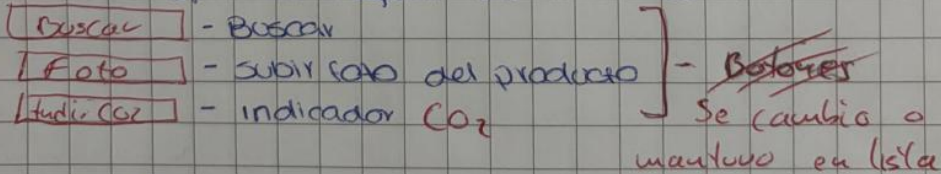 Buscar - Buscar
Foto - subir foto del producto - Botones
Indi. CO2 - indicador CO₂ Se cambio o
mantuvo en lista